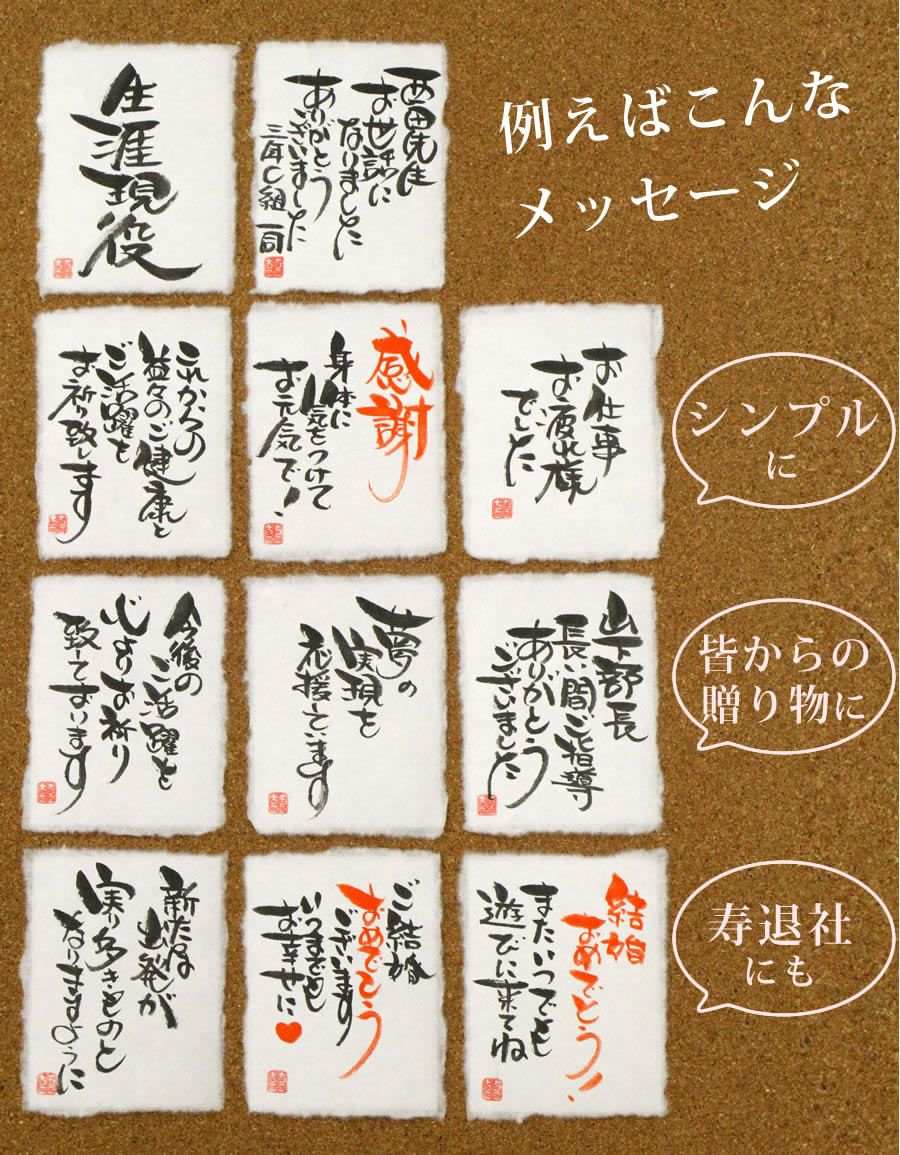 例えばこんな
メッセージ
生涯現役
西田先生
お世話に
なりました
ありがとう
ございました
三年C組 一同
これからの
益々のご健康と
ご活躍を
お祈り致します
感謝
身体に
気をつけて
お元気で!
お仕事
お疲れ様
でした
シンプル
に
今後の
ご活躍を
心よりお祈り
致しております
夢の
実現を
応援しています
山下部長
長い間ご指導
ありがとう
ございました
皆からの
贈り物に
新たな
出発が
実り多きものと
なりますように
ご結婚
おめでとう
ございます
いつまでも
お幸せに♥
結婚
おめでとう!
またいつでも
遊びに来てね
寿退社
にも